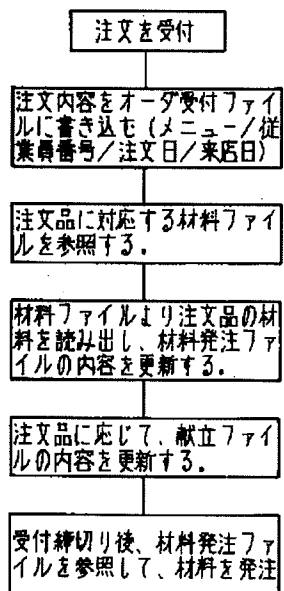 注文を受付
注文内容をオーダ受付ファイ
ルに書き込む(メニュー/従
業員番号/注文日/来店日)
注文品に対応する材料ファイ
ルを参照する.
材料ファイルより注文品の材
料を読み出し、材料発注ファ
イルの内容を更新する.
注文品に応じて、献立ファイ
ルの内容を更新する.
受付締切り後、材料発注ファ
イルを参照して、材料を発注